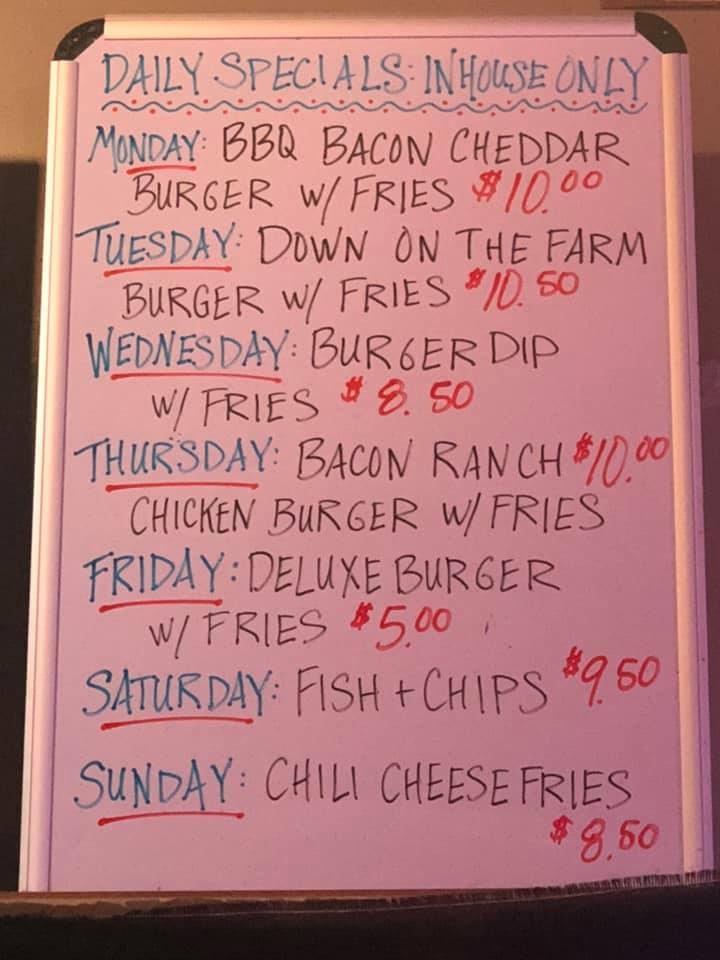 DAILY SPECIALS: IN HOUSE ONLY
MONDAY: BBQ BACON CHEDDAR
BURGER W/ FRIES $10.00
TUESDAY: DOWN ON THE FARM
BURGER W/ FRIES $10.50
WEDNESDAY: BURGER DIP
W/ FRIES $8.50
THURSDAY: BACON RANCH $10.00
CHICKEN BURGER W/ FRIES
FRIDAY: DELUXE BURGER
W/ FRIES $5.00
SATURDAY: FISH + CHIPS $9.50
SUNDAY: CHILI CHEESE FRIES
$8.50